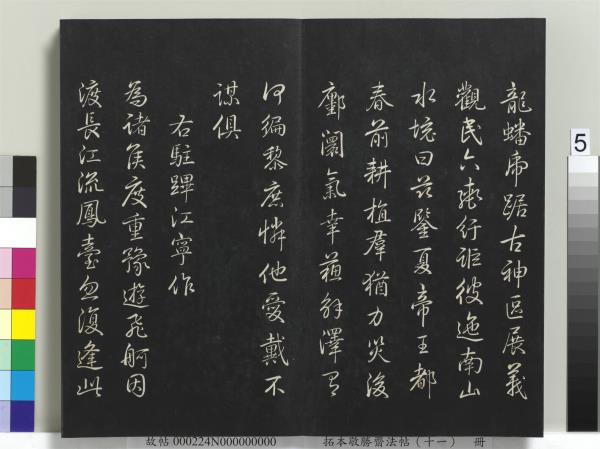 龍蟠虎踞古神區展義
觀民六轡行詎彼迤南山
水境曰茲鑒夏帝王都
春前耕植羣猶力災後
鄽闤氣幸蘓解澤有
何編黎庶憐他愛戴不
謀俱
右駐蹕江寧作
為諸侯度重豫遊飛舸因
渡長江流鳳臺忽復逢此
5
故帖 000224N000000000 拓本敬勝齋法帖（十一） 冊